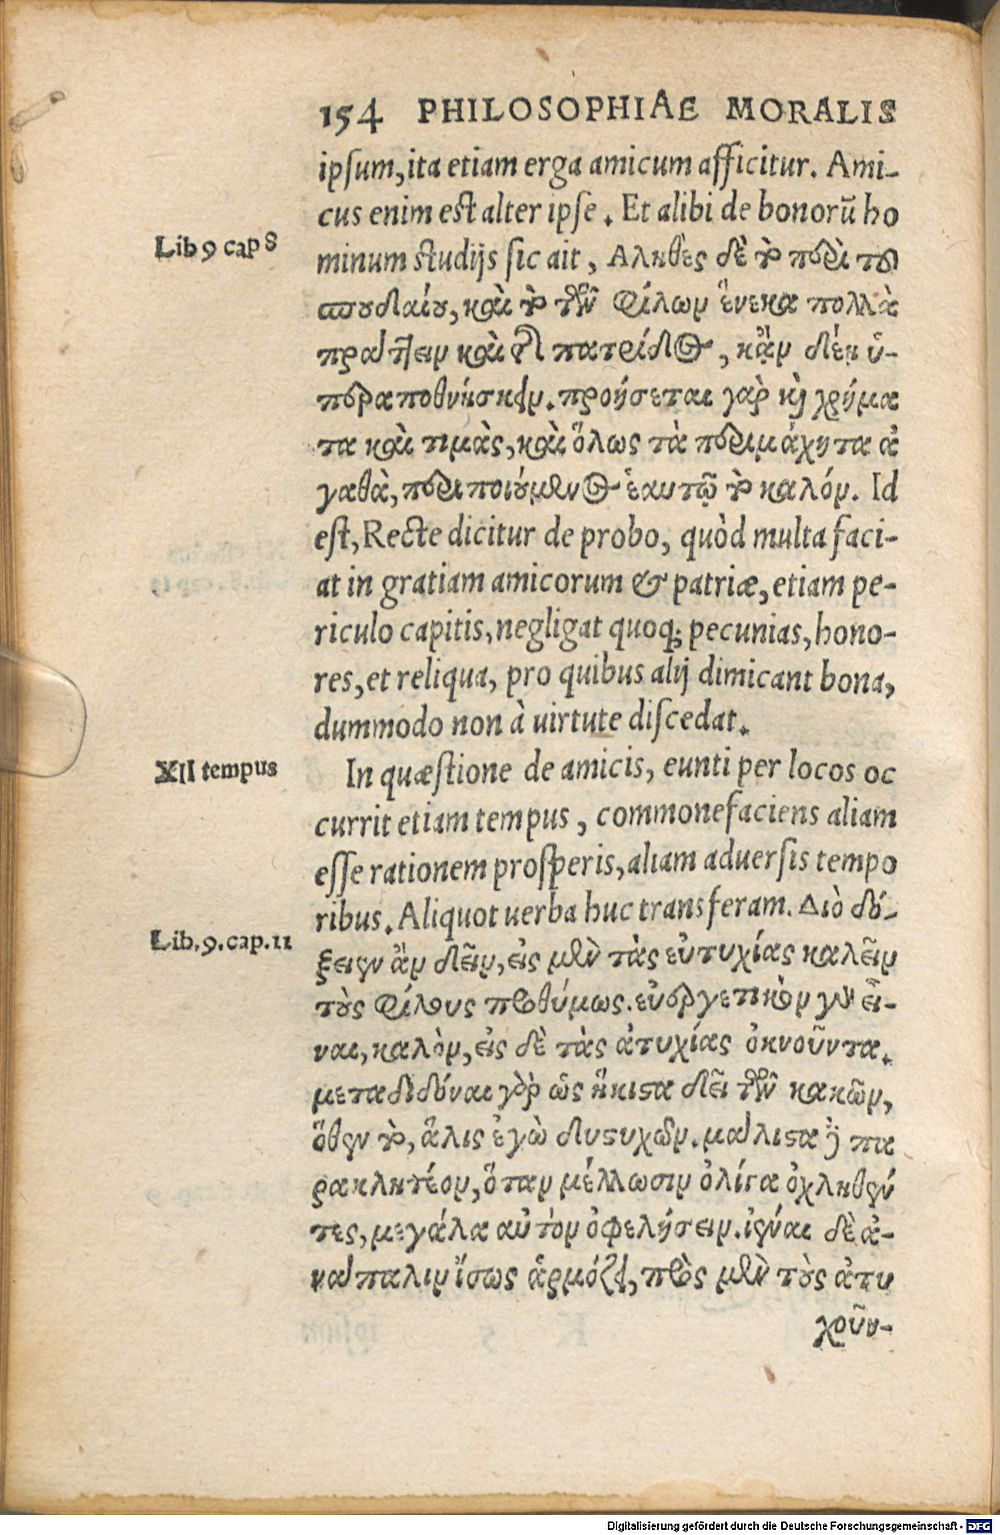 154 PHILOSOPHIAE MORALIS
ipsum, ita etiam erga amicum afficitur. Ami-
cus enim est alter ipse. Et alibi de bonorū ho
Lib 9 cap 8
minum studijs sic ait, Αληθὲς δὲ τὸ περὶ του
σπουδαίου, καὶ τὸ τῶν φίλων ἕνεκα πολλὰ
πράττειν καὶ τῆς πατρίδος, κἂν δέῃ ὑ-
περαποθνήσκειν. προήσεται γὰρ κὴ χρήμα
τα καὶ τιμὰς, καὶ ὅλως τὰ περιμάχητα ἀ
γαθὰ, περιποιούμενος ἑαυτῷ τὸ καλόν. Id
est, Recte dicitur de probo, quòd multa faci-
at in gratiam amicorum & patriæ, etiam pe-
riculo capitis, negligat quoq; pecunias, hono-
res, et reliqua, pro quibus alij dimicant bona,
dummodo non à uirtute discedat.
XII tempus
In quæstione de amicis, eunti per locos oc
currit etiam tempus, commonefaciens aliam
esse rationem prosperis, aliam aduersis tempo
ribus. Aliquot uerba huc transferam. Διὸ δό-
Lib. 9. cap. 11
ξειεν ἂν δεῖν, εἰς μὲν τὰς εὐτυχίας καλεῖν
τοὺς φίλους προθύμως. εὐεργετικὸν γὰρ εἶ-
ναι, καλὸν, εἰς δὲ τὰς ἀτυχίας ὀκνοῦντα.
μεταδιδόναι γὰρ ὡς ἥκιστα δεῖ τῶν κακῶν,
ὅθεν τὸ, ἅλις ἐγὼ δυστυχῶν. μάλιστα δὲ πα
ρακλητέον, ὅταν μέλλωσιν ὀλίγα ὀχληθέν
τες, μεγάλα αὐτὸν ὀφελήσειν. ἰέναι δὲ ἀ-
νάπαλιν ἴσως ἁρμόζει, πρὸς μὲν τοὺς ἀτυ
χοῦν-
Digitalisierung gefördert durch die Deutsche Forschungsgemeinschaft - DFG